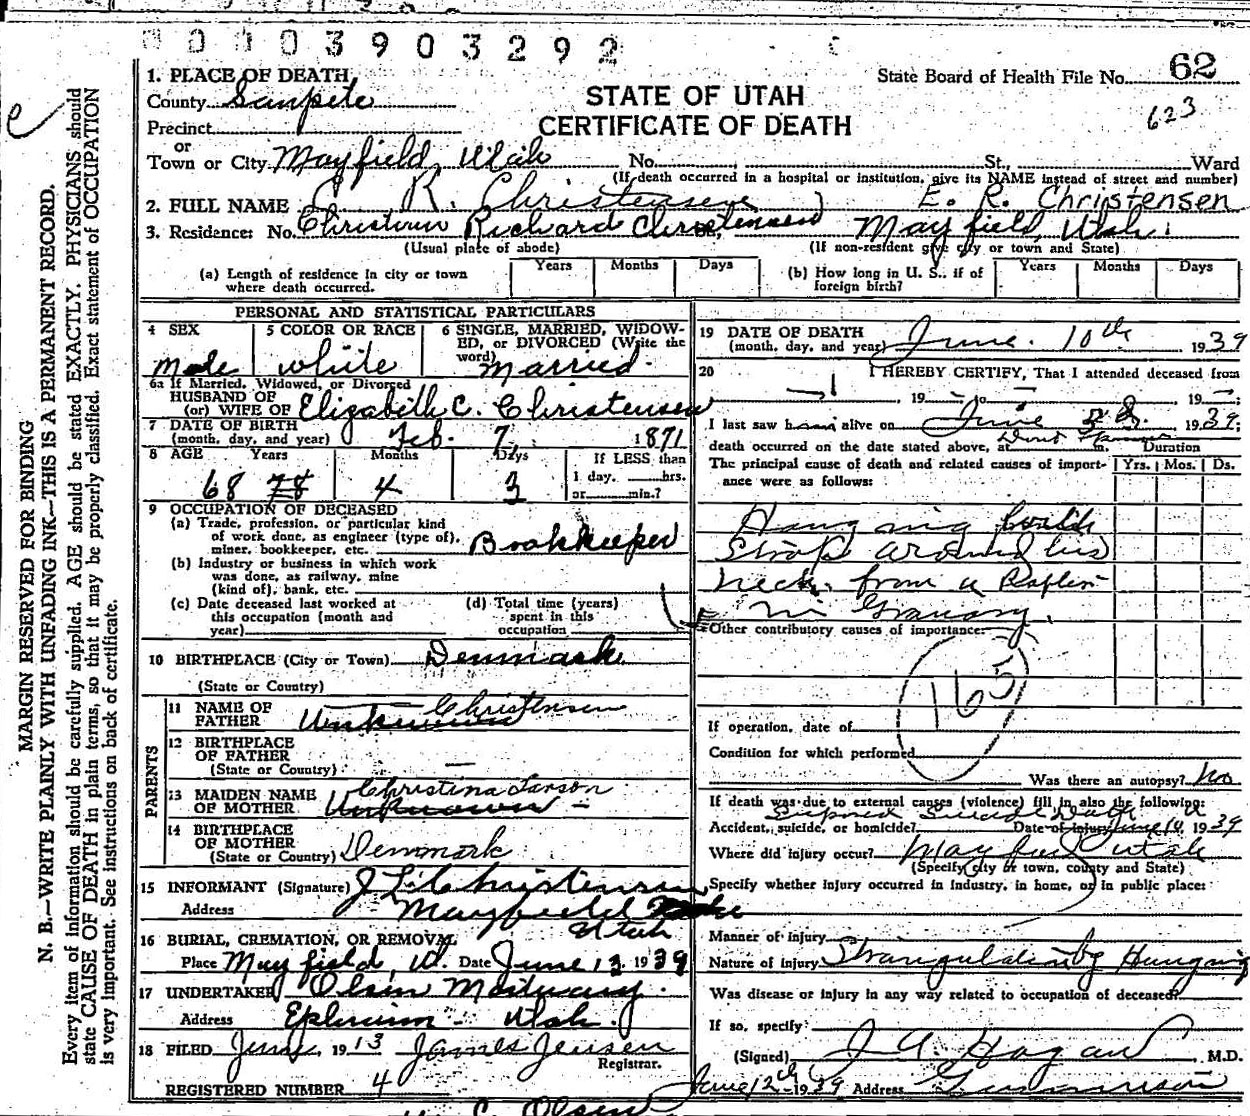 0 0 0 0 3 9 0 3 2 9 2
State Board of Health File No. 62
623
STATE OF UTAH
CERTIFICATE OF DEATH
1. PLACE OF DEATH
County Sanpete
Precinct
or
Town or City Mayfield, Utah No. St., Ward
(If death occurred in a hospital or institution, give its NAME instead of street and number)
2. FULL NAME R. Christensen E. R. Christensen
3. Residence: No. Richard Christensen Mayfield, Utah.
(Usual place of abode) (If non-resident give city or town and State)
(a) Length of residence in city or town where death occurred. Years Months Days
(b) How long in U. S., if of foreign birth? Years Months Days
PERSONAL AND STATISTICAL PARTICULARS
4 SEX Male
5 COLOR OR RACE white
6 SINGLE, MARRIED, WIDOWED, or DIVORCED (Write the word) Married.
6a If Married, Widowed, or Divorced
HUSBAND OF
(or) WIFE OF Elizabeth C. Christensen
7 DATE OF BIRTH
(month, day, and year) Feb. 7, 1871
8 AGE Years Months Days If LESS than
68 78 4 3 1 day, hrs.
or min.?
9 OCCUPATION OF DECEASED
(a) Trade, profession, or particular kind
of work done, as engineer (type of),
miner, bookkeeper, etc. Bookkeeper
(b) Industry or business in which work
was done, as railway, mine
(kind of), bank, etc.
(c) Date deceased last worked at
this occupation (month and
year)
(d) Total time (years)
spent in this
occupation
10 BIRTHPLACE (City or Town) Denmark
(State or Country)
PARENTS
11 NAME OF
FATHER Unknown Christensen
12 BIRTHPLACE
OF FATHER
(State or Country)
13 MAIDEN NAME
OF MOTHER Unknown Christina Larson
14 BIRTHPLACE
OF MOTHER
(State or Country) Denmark
15 INFORMANT (Signature) Christensen
Address Mayfield
Utah
16 BURIAL, CREMATION, OR REMOVAL
Place Mayfield, Ut. Date June 13 1939
17 UNDERTAKER Olsen Mortuary.
Address Ephraim - Utah.
18 FILED June, 1913 James Jensen
Registrar.
REGISTERED NUMBER 4
19 DATE OF DEATH
(month, day, and year) June. 10th 1939
20 I HEREBY CERTIFY, That I attended deceased from
, 19 to , 19 ;
I last saw h alive on June 1939;
death occurred on the date stated above, at m. Duration
The principal cause of death and related causes of importance were as follows: Yrs. Mos. Ds.
Hanging
strap around his
neck. from a Rafter
in Granary.
Other contributory causes of importance:
165
If operation, date of
Condition for which performed
Was there an autopsy? No
If death was due to external causes (violence) fill in also the following:
Accident, suicide, or homicide? Suicide Date of injury June 10, 1939
Where did injury occur? Mayfield Utah
(Specify city or town, county and State)
Specify whether injury occurred in industry, in home, or in public place:
Manner of injury
Nature of injury Strangulation by Hanging
Was disease or injury in any way related to occupation of deceased?
If so, specify:
(Signed) J A Hagan, M.D.
June 12th 1939 Address Gunnison
C. Olsen
MARGIN RESERVED FOR BINDING
N. B.—WRITE PLAINLY WITH UNFADING INK—THIS IS A PERMANENT RECORD.
Every item of information should be carefully supplied. AGE should be stated EXACTLY. PHYSICIANS should
state CAUSE OF DEATH in plain terms, so that it may be properly classified. Exact statement of OCCUPATION
is very important. See instructions on back of certificate.